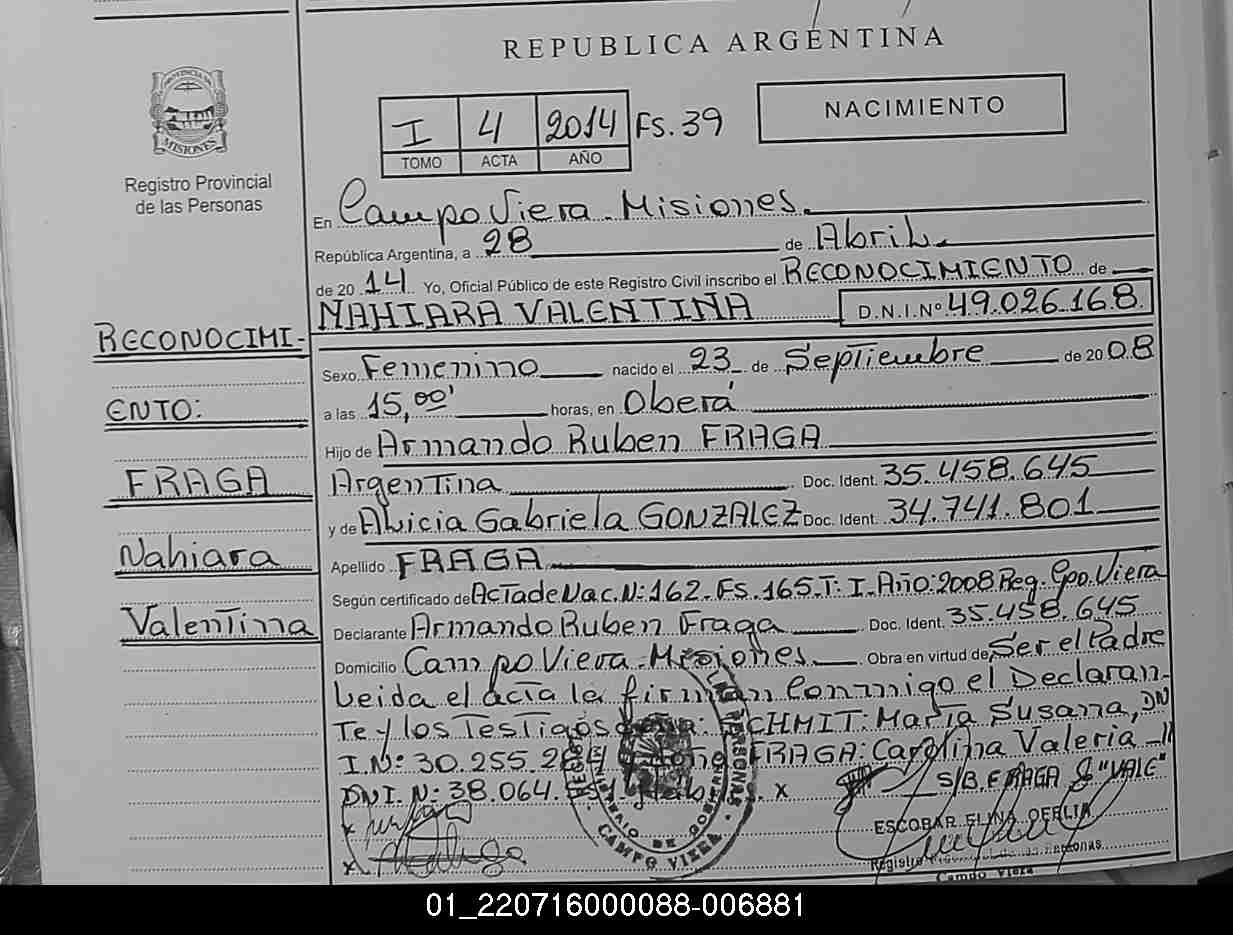 REPUBLICA ARGENTINA
PROVINCIA DE
MISIONES
Registro Provincial
de las Personas
I 4 2014 FS. 39
TOMO ACTA AÑO
NACIMIENTO
En Campo Viera - Misiones.
República Argentina, a 28 de Abril.
de 2014 Yo, Oficial Público de este Registro Civil inscribo el RECONOCIMIENTO de
NAHIARA VALENTINA D.N.I.Nº 49.026.168.
RECONOCIMI-
ENTO:
FRAGA
Nahiara
Valentina
Sexo Femenino nacido el 23 de Septiembre de 2008
a las 15,00' horas, en Oberá
Hijo de Armando Ruben FRAGA
Argentina Doc. Ident. 35.458.645
y de Alicia Gabriela GONZALEZ Doc. Ident. 34.741.801
Apellido FRAGA
Según certificado de Acta de Nac. N: 162. FS. 165. T: I. Año: 2008 Reg. Cpo. Viera
Declarante Armando Ruben Fraga Doc. Ident. 35.458.645
Domicilio Campo Viera - Misiones Obra en virtud de Ser el Padre
Leida el acta la firman Conmigo el Declaran-
Te y los Testigos SCHMIT: María Susana, DN
I.Nº: 30.255.264 FRAGA: Carolina Valeria
DNI. N: 38.064. x S/B. FRAGA "VALE"
ESCOBAR ELINA OFELIA
x
x
Registro Personas
Campo Viera
CAMPO VIERA
01_220716000088-006881